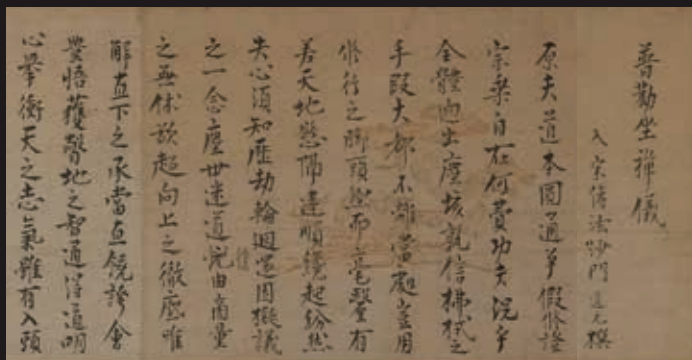 普勸坐禪儀
入宋傳法沙門道元撰
原夫道本圓通爭假修證
宗乘自在何費功夫況乎
全體迥出塵埃孰信拂拭之
手段大都不離當處豈用
修行之脚頭然而毫釐有
差天地懸隔違順纔起紛然
失心須知歷劫輪迴還因擬議
之一念塵世迷道復由商量
之無休欲超向上之徹底唯
解直下之承當直饒誇會
豐悟獲瞥地之智通得道明
心擧衝天之志氣雖有入頭